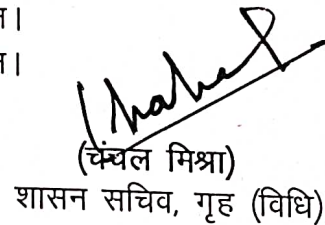 ।
।
(चंचल मिश्रा)
शासन सचिव, गृह (विधि)